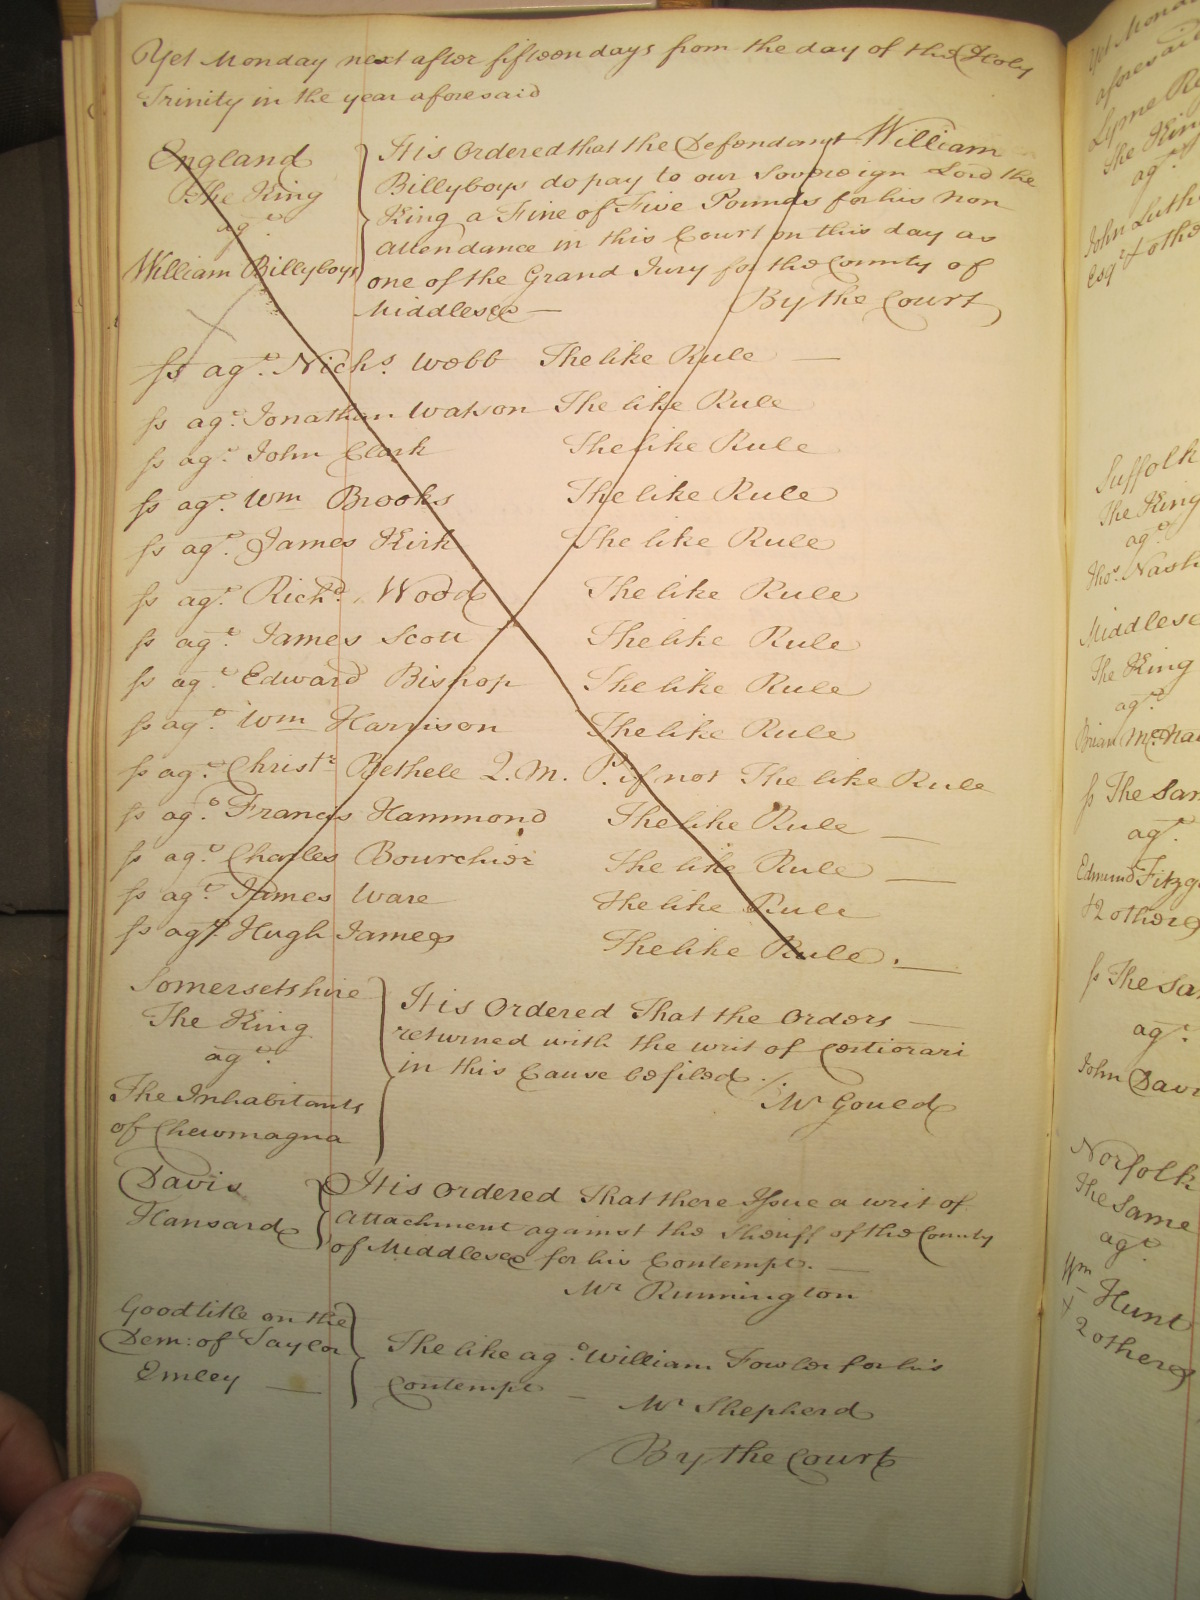 Yet Monday next after fifteen days from the day of the Holy
Trinity in the year aforesaid
England
The King
agt.
William Billyboys
It is Ordered that the Defendant William
Billyboys do pay to our Sovereign Lord the
King a Fine of Five Pounds for his Non
attendance in this Court on this day as
one of the Grand Jury for the County of
Middlesex —
By the Court
ss agt. Nichs. Webb The like Rule —
ss agt. Jonathan Watson The like Rule
ss agt. John Clark The like Rule
ss agt. Wm Brooks The like Rule
ss agt. James Kirk The like Rule
ss agt. Richd. Wood The like Rule
ss agt. James Scott The like Rule
ss agt. Edward Bishop The like Rule
ss agt. Wm Harrison The like Rule
ss agt. Christr Bethell Q. M. P. if not The like Rule
ss agt. Francis Hammond The like Rule —
ss agt. Charles Bourchier The like Rule —
ss agt. James Ware The like Rule
ss agt. Hugh James The like Rule. —
Somersetshire
The King
agt.
The Inhabitants
of Chewmagna
It is Ordered That the Orders —
returned with the writ of Certiorari
in this Cause be filed ./.
Mr Gould
Davis
Hansard
It is Ordered That there Issue a writ of
Attachment against the Sheriff of the County
of Middlesex for his Contempt. —
Mr Runnington
Goodtitle on the
Dem: of Taylor
Emley —
The like agt. William Fowler for his
Contempt —
Mr Shepherd
By the Court
Yet Monda
aforesaid
Lyme Re
The King
agt.
John Luth
Esqr & othe
Suffolk
The King
agt.
Thos. Nash
Middlese
The King
agt.
Brian McMa
ss The Sam
agt.
Edmund Fitzg
& 2 others
ss The Sa
agt.
John Davi
Norfolk
The Same
agt.
Wm Hunt
& 2 others